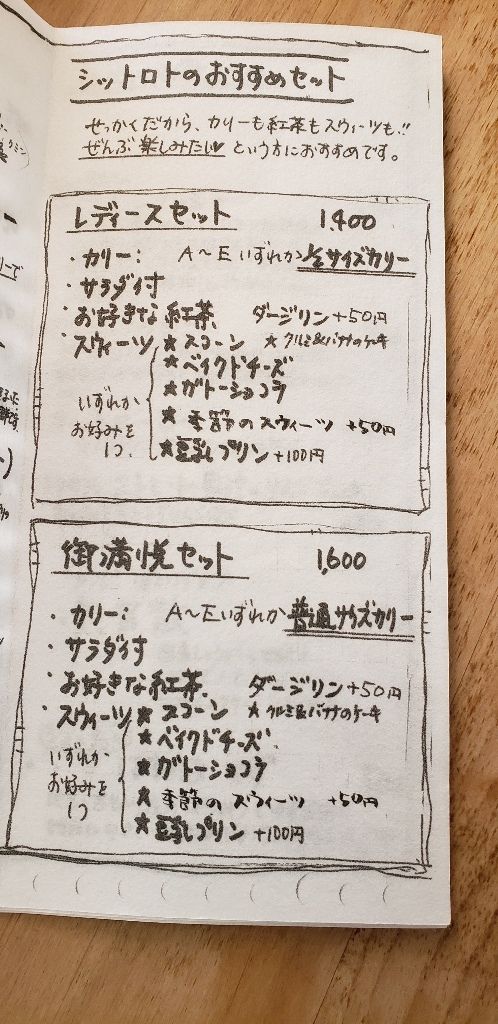 シットロトのおすすめセット
せっかくだから、カリーも紅茶もスウィーツも!!
ぜんぶ楽しみたい♥という方におすすめです。
レディースセット 1,400
・カリー: A〜Eいずれか½サイズカリー
・サラダ付
・お好きな紅茶、 ダージリン+50円
・スウィーツ ★スコーン ★クルミ&バナナのケーキ
★ベイクドチーズ
★ガトーショコラ
いずれか
お好みを
1つ、
★季節のスウィーツ +50円
★豆乳プリン+100円
御満悦セット 1,600
・カリー: A〜Eいずれか普通サイズカリー
・サラダ付
・お好きな紅茶、 ダージリン+50円
・スウィーツ ★スコーン ★クルミ&バナナのケーキ
★ベイクドチーズ
★ガトーショコラ
いずれか
お好みを
1つ
★季節のスウィーツ +50円
★豆乳プリン+100円